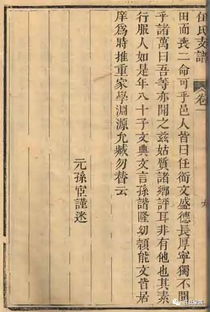 任氏支譜 卷一
田而喪二命可乎邑人皆曰任衛文盛德長厚寧獨不聞
乎諸萬曰吾等亦聞之茲姑質諸鄉評耳非有他也其素
行服人如是年八十子文典文言孫諧隆幼穎能文皆居
庠爲時推重家學淵源允臧勿替云
元孫宦謹述